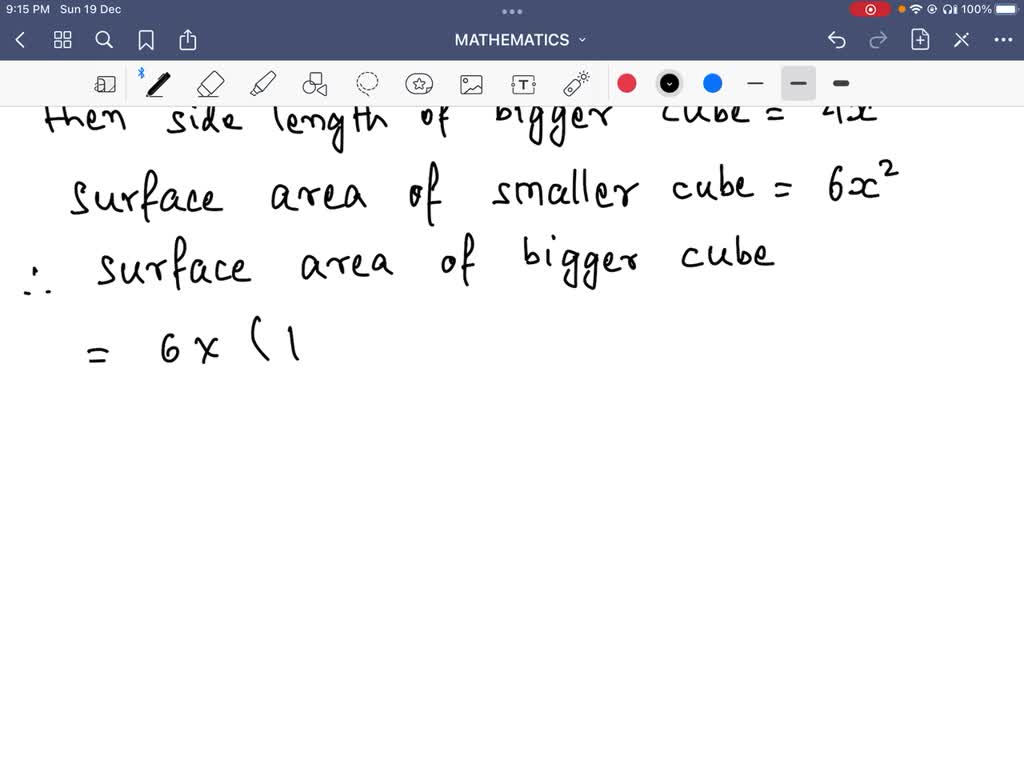 9:15 PM Sun 19 Dec 100%
MATHEMATICS
then side length of bigger cube = 4x
surface area of smaller cube = 6x²
∴ surface area of bigger cube
= 6 × (1